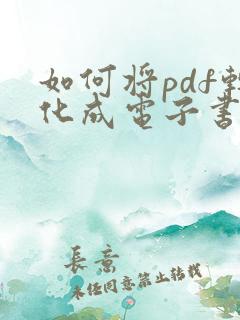 如何将pdf转
化成电子书
長意
未经同意禁止转载